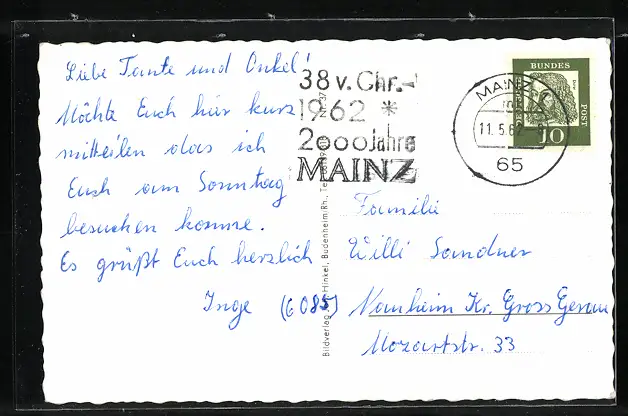 Liebe Tante und Onkel!
Möchte Euch hier kurz
mitteilen das ich
Euch am Sonntag
besuchen komme.
Es grüßt Euch herzlich
Inge (6085)
38 v. Chr.-
1962 *
2000 Jahre
MAINZ
MAINZ
11.5.62
65
DEUTSCHE
BUNDES
POST
10
Familie
Willi Sandner
Nauheim Kr. Gross Gerau
Mozartstr. 33
Bildverlag Hinkel, Budenheim/Rh.,